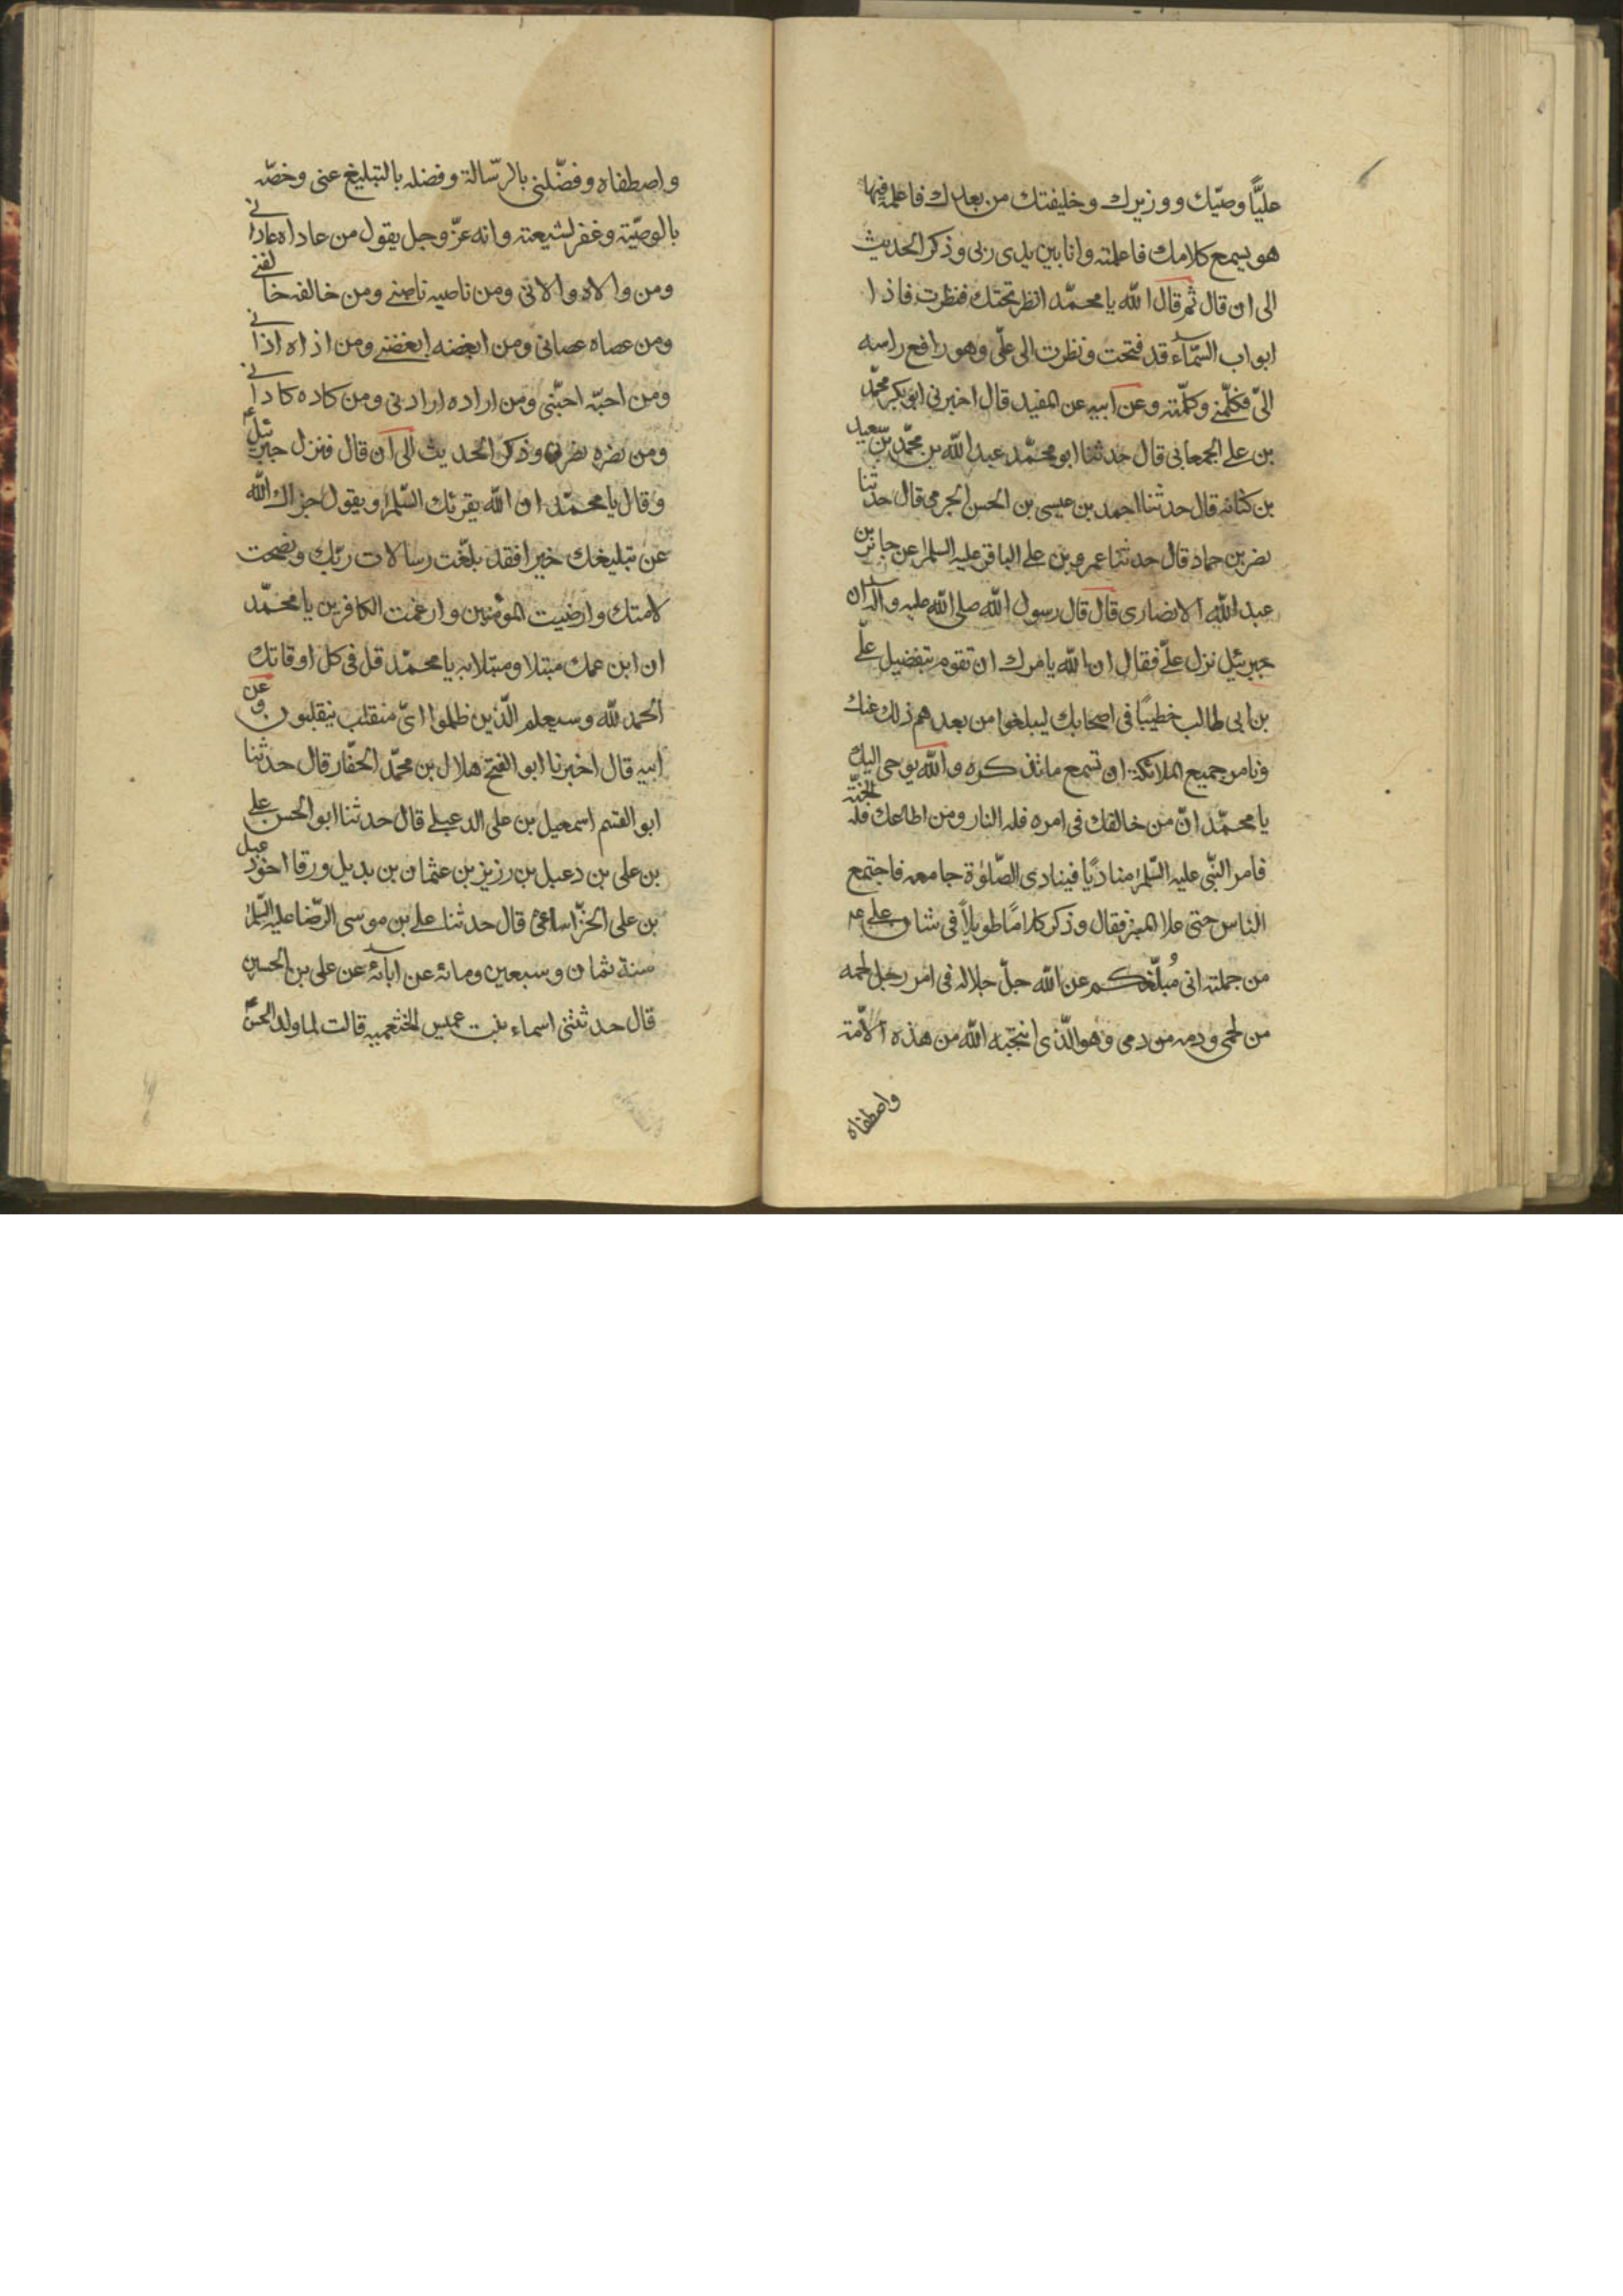 عليًّا وصيّك ووزيرك وخليفتك من بعدك فاعلمه فيها
هو يسمع كلامك فاعلمته وانا بين يدى ربى وذكر الحديث
الى ان قال ثم قال الله يا محمّد انظر تحتك فنظرت فاذا
ابواب السّمآء قد فتحت ونظرت الى علّى وهو رافع راسه
الىّ فكلّمنے وكلّمته وعن ابيه عن المفيد قال اخبرنى ابو بكر محمّد
بن علے الجمعابى قال حدثنا ابو محمّد عبد الله بن محمّد بن سعيد
بن كنانه قال حدثنا احمد بن عيسى بن الحسن الجرمى قال حدثنا
نصر بن حماد قال حدثنا عمرو بن علے الباقر عليه السلم عن جابر بن
عبد الله الانصارى قال قال رسول الله صلى الله عليه واله ان
جبرئيل نزل علّے فقال ان الله يامرك ان تقوم بتفضيل علّے
بن ابى طالب خطيبًا فى اصحابك ليبلغوا من بعدهم ذلك عنك
ونامر جميع الملائكة ان تسمع ما تذكره والله يوحى اليك
يا محمّد انّ من خالفك فى امره فله النار ومن اطاعك فله الجنّة
فامر النّبى عليه السّلم مناديًا فينادى الصّلوٰة جامعه فاجتمع
الناس حتى علا المنبر فقال وذكر كلامًا طويلًا فى شان علے عم
من جملته انى مُبلّغكم عن الله جلّ جلاله فى امر رجل لحمه
من لحمى ودمه من دمى وهو الّذى انتجبه الله من هذه الامّة
واصطفاه
واصطفاه وفضّلنى بالرّسالة وفضله بالتبليغ عنى وخصّه
بالوصيّة وغفر لشيعته وانه عزّ وجل يقول من عاداه عادانے
ومن والاه والانى ومن ناصبه ناصبنے ومن خالفه خالفنے
ومن عصاه عصانى ومن ابغضه ابغضنے ومن اذاه اذانے
ومن احبّه احبّنى ومن اراده ارادنى ومن كاده كادانے
ومن نصره نصرنى وذكر الحديث الى ان قال فنزل جبرئيل ع
وقال يا محمّد ان الله يقرئك السّلم ويقول جزاك الله
عن تبليغك خيرا فقد بلّغت رسالات ربّك ونصحت
لامتك وارضيت المؤمنين وارغمت الكافرين يا محمّد
ان ابن عمك مبتلا ومبتلا به يا محمّد قل فى كل اوقاتك
الحمد لله وسيعلم الّذين ظلموا اىّ منقلب ينقلبون وعن
ابيه قال اخبرنا ابو الفتح هلال بن محمّد الحفّار قال حدثنا
ابو القسم اسمعيل بن على الدعبلے قال حدثنا ابو الحسن علے
بن على بن دعبل بن رزيز بن عثمان بن بديل ورقا اخو دعبل
بن على الخزّاساعى قال حدثنا علے بن موسى الرّضا عليه السّلم
سنة ثمان وسبعين ومائه عن ابآئه عن على بن الحسين
قال حدثتنى اسماء بنت عميس الخثعميه قالت لما ولد الحسن